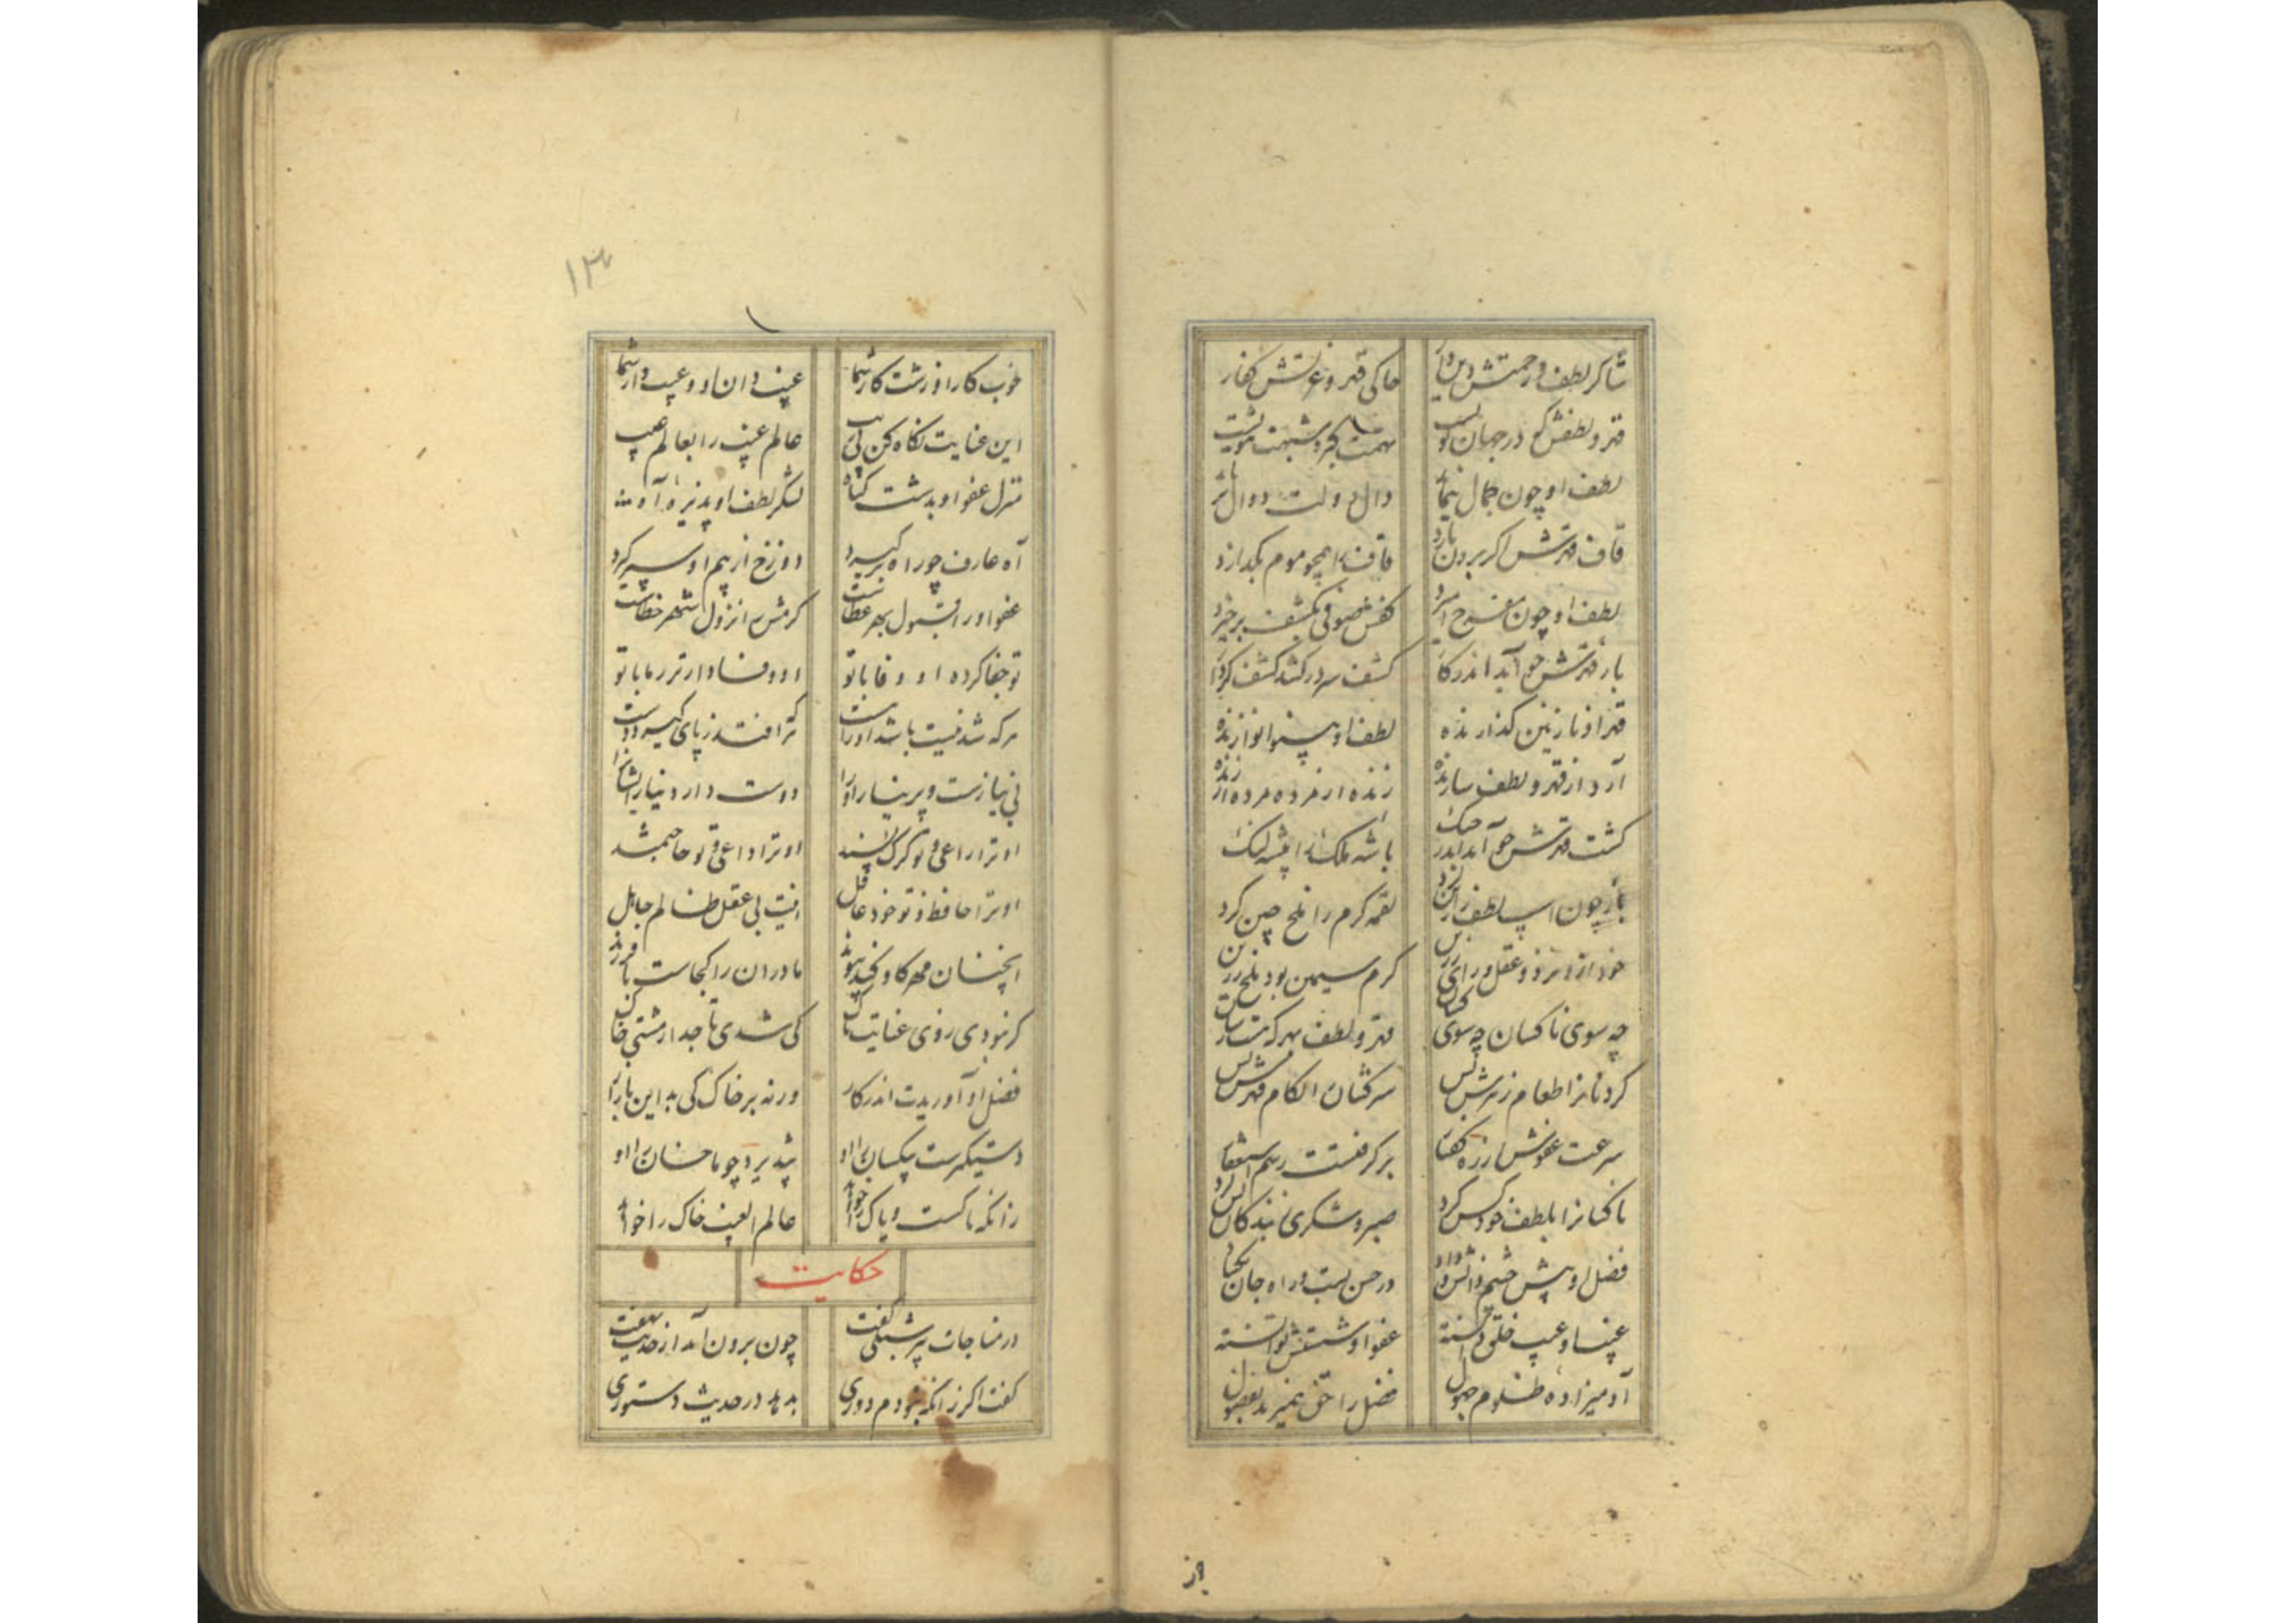 شاکر لطف و رحمتش دین‌دار حاکی قهر و غیرتش کفار
قهر و لطفش که در جهان تهمت گبر و شبهت ثنویست
لطف او چون جمال بنماید دال دولت دوال
قاف قهرش اگر برون تازد قاف را همچو موم بگدازد
لطف او چون مفرح آمیزد کفش صوفی بکشف برخیزد
باز قهرش چو آید اندر کار کشف سر درکشد کشف کردار
قهر او نازنین گدازنده لطف او بینوا نوازنده
آرد از قهر و لطف سازنده زنده از مرده مرده از زنده
گشت قهرش چو آمد اندر جنگ باشه ملک را پشه لنگ
باز چون اسپ لطف را زین کرد لقمه کرم را تلخ چین کرد
خود از و عقل و رای کرم سیمین بود تلخ زرین
چه سوی ناکسان چه سوی کسان قهر و لطفت بهر که هست رسان
کرد نانرا طعام زهرش بس سرکشان را لکام قهرش بس
سرعت عفوش از ره گفتار برگرفتست رسم استغفار
ناکسانرا بلطف خود کس کرد صبر و شکری ز بندگان بس کرد
فضل او پیش چشم دانش و داد در حس بست و راه جان بگشاد
غیب او عیب خلق دانسته عفو او شستنش توانسته
آدمیزاده ظلوم جهول فضل را حق همیزند بفضول
چز
۱۳
خوب کار او زشت کار شما غیب‌دان او و عیب‌دار شما
این عنایت نگاه کن بی ریب عالم غیب را بعالم عیب
منزل عفو او بدشت گناه لشکر لطف او پذیره آه
آه عارف چو راه برگیرد دوزخ از بیم او سپر گیرد
عفو او را قبول بهر عطاست کرمش را نزول بهر خطاست
تو جفا کرده او وفا با تو او وفادارتر ز ما با تو
هرکه شد نیست باشد او را هست کرا افتد ز پای گیرد دست
بی نیازست و پر نیاز او را دوست دارد نیاز ایشانرا
او ترا راعی و تو گرگ پسند او ترا داعی و تو حاجتمند
او ترا حافظ و تو خود غافل اینت بی عقل ظالم جاهل
آنچنان مهر کاو کند پیوند مادران را کجاست با فرزند
گر نبودی ز وی عنایت پاک کی شدی تاجدار مشتی خاک
فضل او آوریدت اندر کار ورنه بر خاک کی بد این بازار
دستگیرست بیکسان را او نپذیرد چو ما خسان را او
زانکه پاکست و پاک را خواهد عالم الغیب خاک را خواهد
حکایت
در مناجات پیر شبلی گفت چون برون آمد از حدیث نهفت
گفت اگر زانکه نبودم دوری بدهد در حدیث دستوری